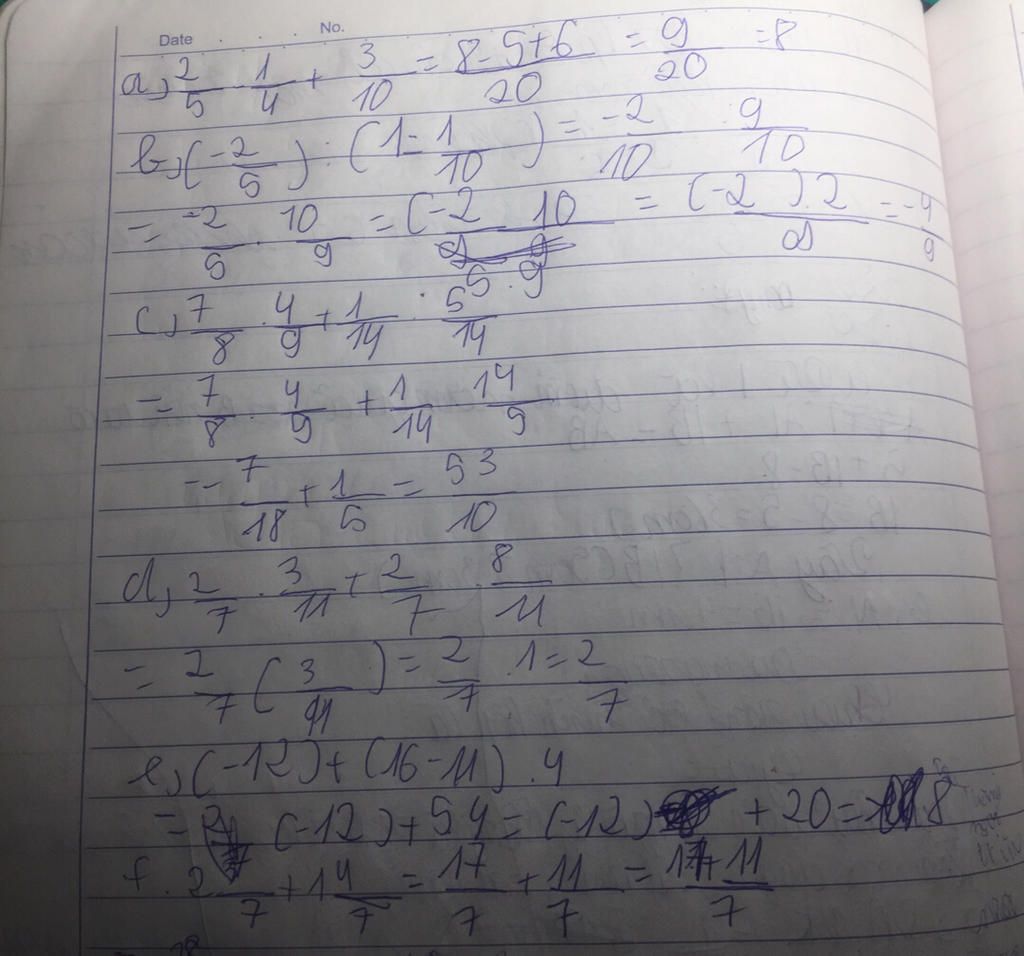 Date No.
a, 2/5 - 1/4 + 3/10 = (8-5+6)/20 = 9/20 = 8
b, (-2/5) : (1-1/10) = -2/10 . 9/10
= -2/5 . 10/9 = (-2 10)/(5.9) = ((-2).2)/9 = -4/9
c, 7/8 . 4/9 + 1/14 : 5/14
= 7/8 . 4/9 + 1/14 14/9
= 7/18 + 1/5 = 53/10
d, 2/7 . 3/11 + 2/7 . 8/11
= 2/7 (3/11) = 2/7 . 1 = 2/7
e, (-12) + (16-11) .4
= (-12) + 5 4 = (-12) + 20 = 8
f. 2 /7 + 1 4/7 = 17/7 + 11/7 = (17+11)/7